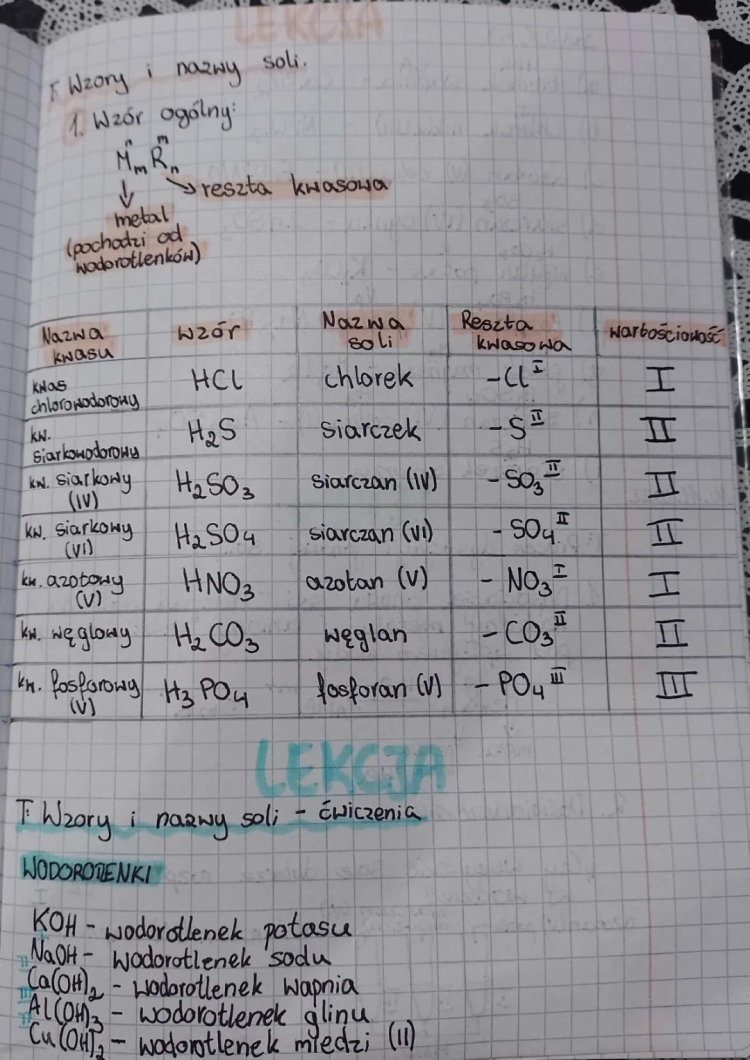 LEKCJA
T. Wzory i nazwy soli.
1. Wzór ogólny:
n m
MmRn
reszta kwasowa
metal
(pochodzi od
wodorotlenków)
Nazwa kwasu | wzór | Nazwa soli | Reszta kwasowa | wartościowość
kwas chlorowodorowy | HCl | chlorek | -Cl^I | I
kw. siarkowodorowy | H₂S | siarczek | -S^II | II
kw. siarkowy (IV) | H₂SO₃ | siarczan (IV) | -SO₃^II | II
kw. siarkowy (VI) | H₂SO₄ | siarczan (VI) | -SO₄^II | II
kw. azotowy (V) | HNO₃ | azotan (V) | -NO₃^I | I
kw. węglowy | H₂CO₃ | węglan | -CO₃^II | II
kw. fosforowy (V) | H₃PO₄ | fosforan (V) | -PO₄^III | III
LEKCJA
T: Wzory i nazwy soli - ćwiczenia
WODOROTLENKI
KOH - wodorotlenek potasu
NaOH - wodorotlenek sodu
II Ca(OH)₂ - wodorotlenek wapnia
III Al(OH)₃ - wodorotlenek glinu
II Cu(OH)₂ - wodorotlenek miedzi (II)